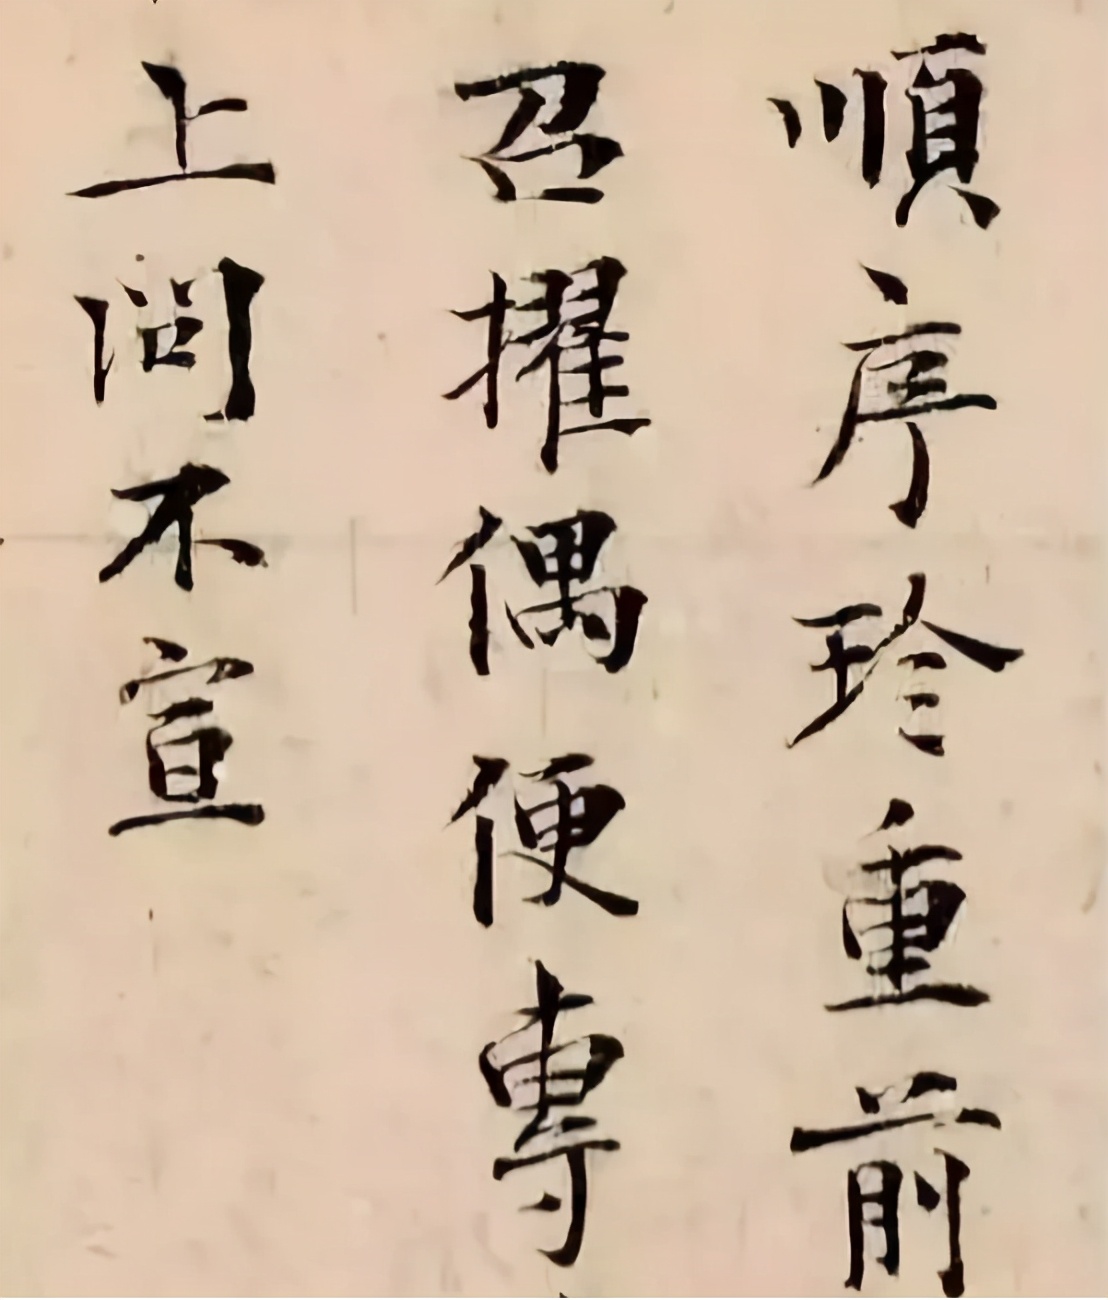 順序珍重前
召擢偶便專
上問不宣